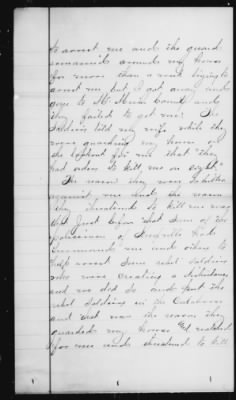 to arrest me and the guard
remained around my house
for more than a week trying to
arrest me but I got away and
gone to Mt. and
they failed to get me. The
soldiers told my wife while they
were guarding my house on
the lookout for me that they
had orders to kill me on sight.
The reason they were so bitter
against me and the reason
they threatened to kill me was
that just before that some of the
policemen of
me and others to
help arrest some rebel soldiers
who were creating a disturbance
and we did so and put the
rebel soldiers in the Calaboose
and that was the reason they
guarded my house and watched
for me and threatened to kill